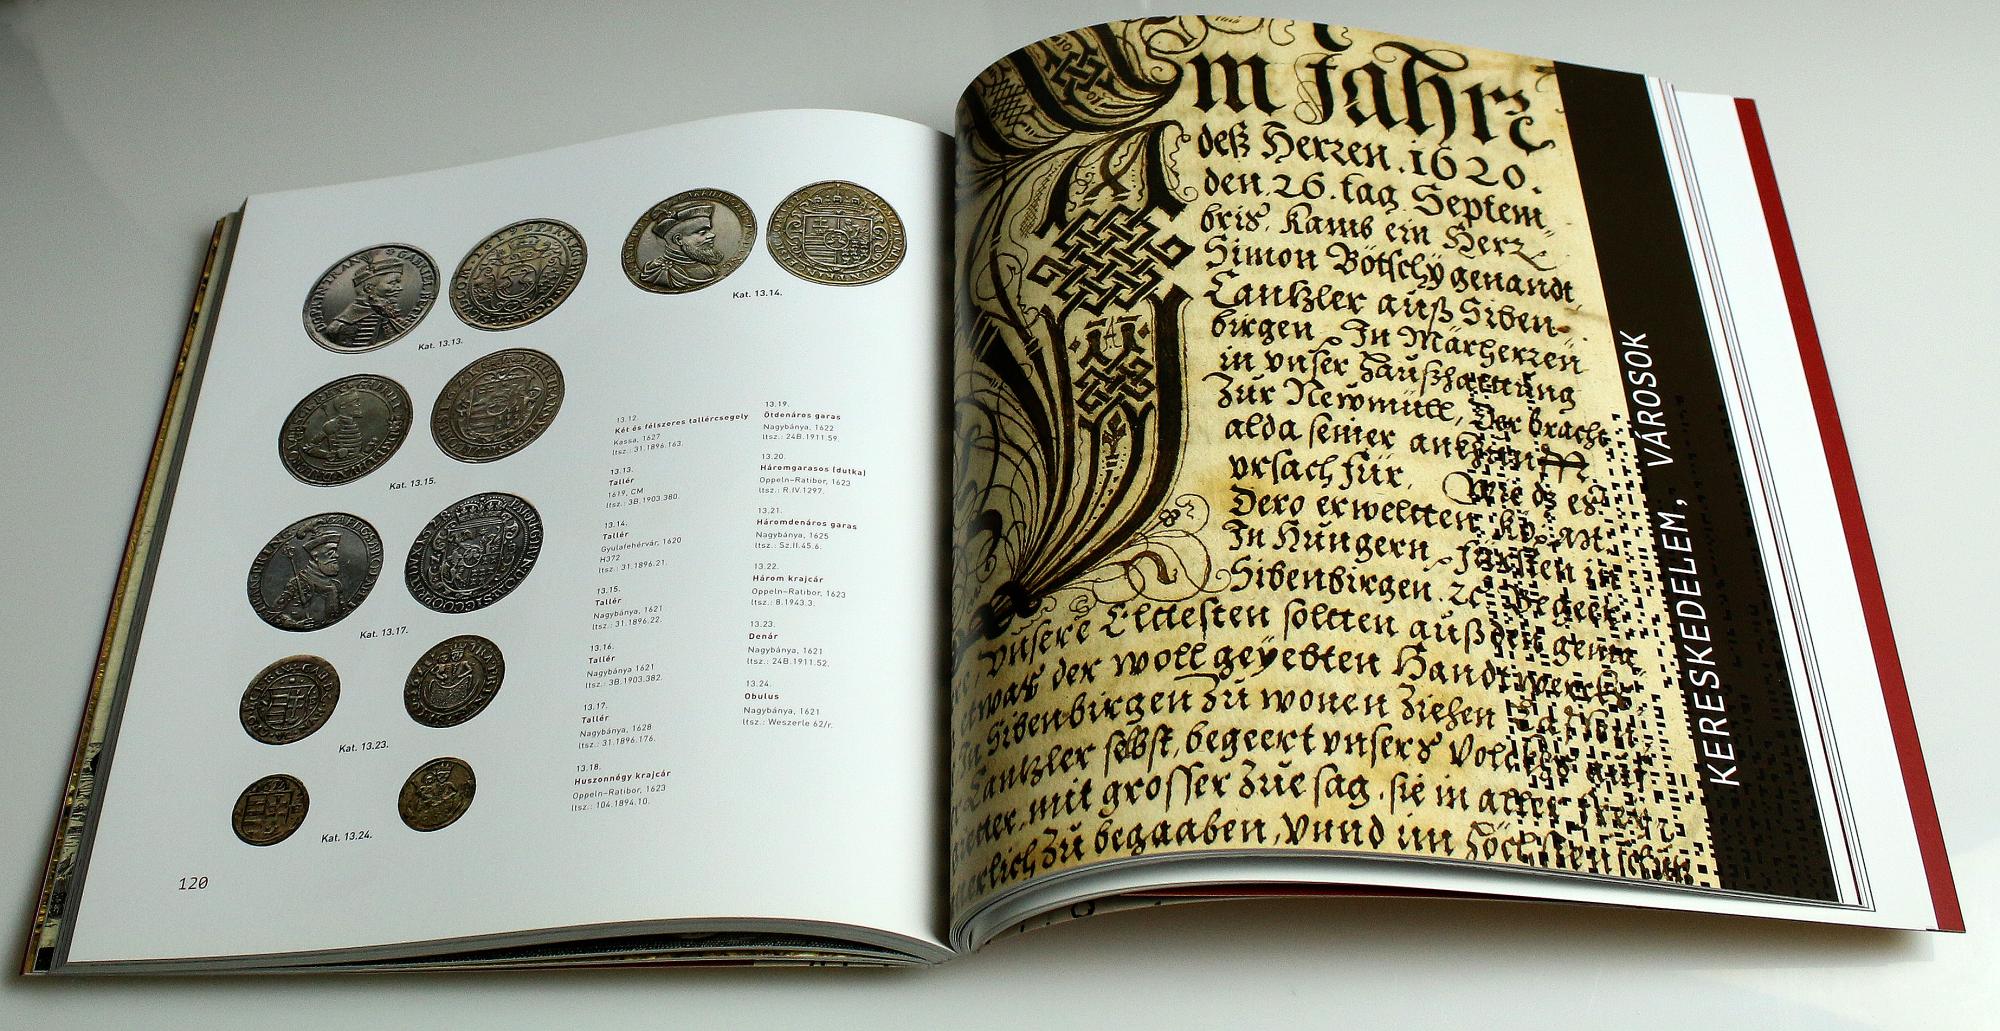 Kat. 13.13.
Kat. 13.14.
Kat. 13.15.
Kat. 13.17.
Kat. 13.23.
Kat. 13.24.
13.12.
Két és félszeres tallércsegely
Kassa, 1627
ltsz.: 31.1896.163.
13.13.
Tallér
1619, CM
ltsz.: 3B.1903.380.
13.14.
Tallér
Gyulafehérvár, 1620
H372
ltsz.: 31.1896.21.
13.15.
Tallér
Nagybánya, 1621
ltsz.: 31.1896.22.
13.16.
Tallér
Nagybánya 1621
ltsz.: 3B.1903.382.
13.17.
Tallér
Nagybánya, 1628
ltsz.: 31.1896.176.
13.18.
Huszonnégy krajcár
Oppeln–Ratibor, 1623
ltsz.: 104.1894.10.
13.19.
Ötdenáros garas
Nagybánya, 1622
ltsz.: 24B.1911.59.
13.20.
Háromgarasos (dutka)
Oppeln–Ratibor, 1623
ltsz.: R.IV.1297.
13.21.
Háromdenáros garas
Nagybánya, 1625
ltsz.: Sz.II.45.6.
13.22.
Három krajcár
Oppeln–Ratibor, 1623
ltsz.: 8.1943.3.
13.23.
Denár
Nagybánya, 1621
ltsz.: 24B.1911.52.
13.24.
Obulus
Nagybánya, 1621
ltsz.: Weszerle 62/r.
120
Im Jahr
deß Herren .1620.
den .26. tag Septem„
bris. Kamb ein Herr
Simon Bötschÿ genandt
Cantzler auß Siben„
birgen. In Märherren
in vnser Haußhaltung
zur Newmüll, Der bracht
alda seiner ankhunfft
vrsach für. Wie dz es
Dero erwelten König
In Hungern, fürsten in
Sibenbirgen. zc. begert
vnsere Elltesten sollten auß den gmain
etwas der woll geyebten Handtwercker
In Sibenbirgen zu wonen ziehen lassen,
Cantzler selbst, begeert vnsers Vollcks auf
mit grosser zue sag, sie in aller
zu begaaben, Vnnd im Höchsten schutz
KERESKEDELEM, VÁROSOK